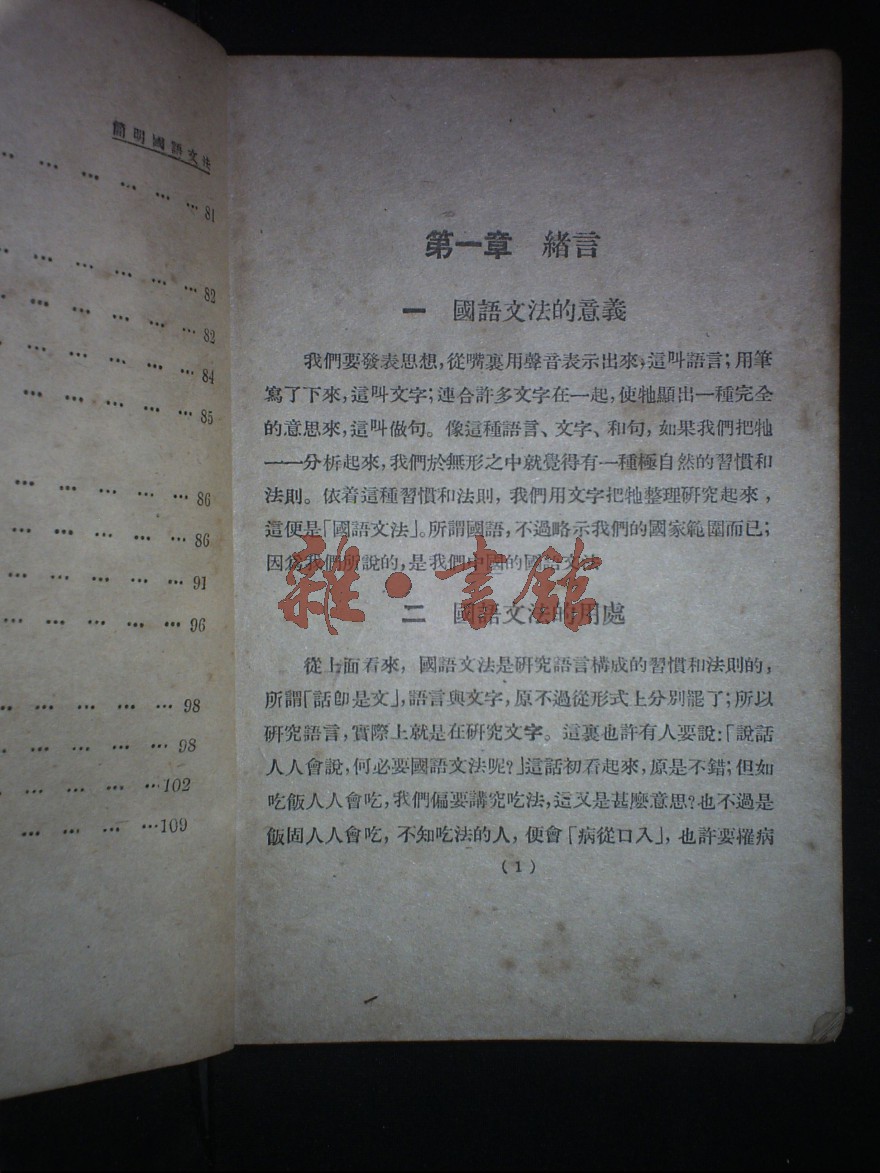 簡明國語文法
… … … … … 81
… … … … … 82
… … … … … 82
… … … … … 84
… … … … … 85
… … … … … 86
… … … … … 86
… … … … … 91
… … … … … 96
… … … … … 98
… … … … … 98
… … … … …102
… … … … …109
第一章 緒言
一 國語文法的意義
我們要發表思想，從嘴裏用聲音表示出來，這叫語言；用筆
寫了下來，這叫文字；連合許多文字在一起，使牠顯出一種完全
的意思來，這叫做句。像這種語言、文字、和句，如果我們把牠
一一分析起來，我們於無形之中就覺得有一種極自然的習慣和
法則。依着這種習慣和法則，我們用文字把牠整理研究起來，
這便是「國語文法」。所謂國語，不過略示我們的國家範圍而已；
因爲我們所說的，是我們中國的國語文法
雜·書館
二 國語文法的用處
從上面看來，國語文法是研究語言構成的習慣和法則的，
所謂「話卽是文」，語言與文字，原不過從形式上分別罷了；所以
研究語言，實際上就是在研究文字。這裏也許有人要說：「說話
人人會說，何必要國語文法呢？」這話初看起來，原是不錯；但如
吃飯人人會吃，我們偏要講究吃法，這又是甚麼意思？也不過是
飯固人人會吃，不知吃法的人，便會「病從口入」，也許要罹病
（1）